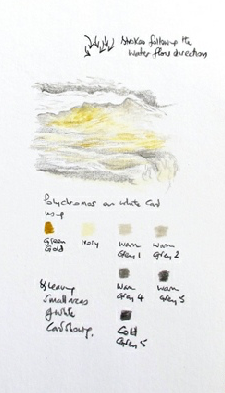 Strokes following the
water flow direction
Polychromos on white Card
using
Green Gold
Ivory
Warm Grey 1
Warm Grey 2
Warm Grey 4
Warm Grey 5
Cold Grey 5
Leaving
small areas
of white
Card showing.